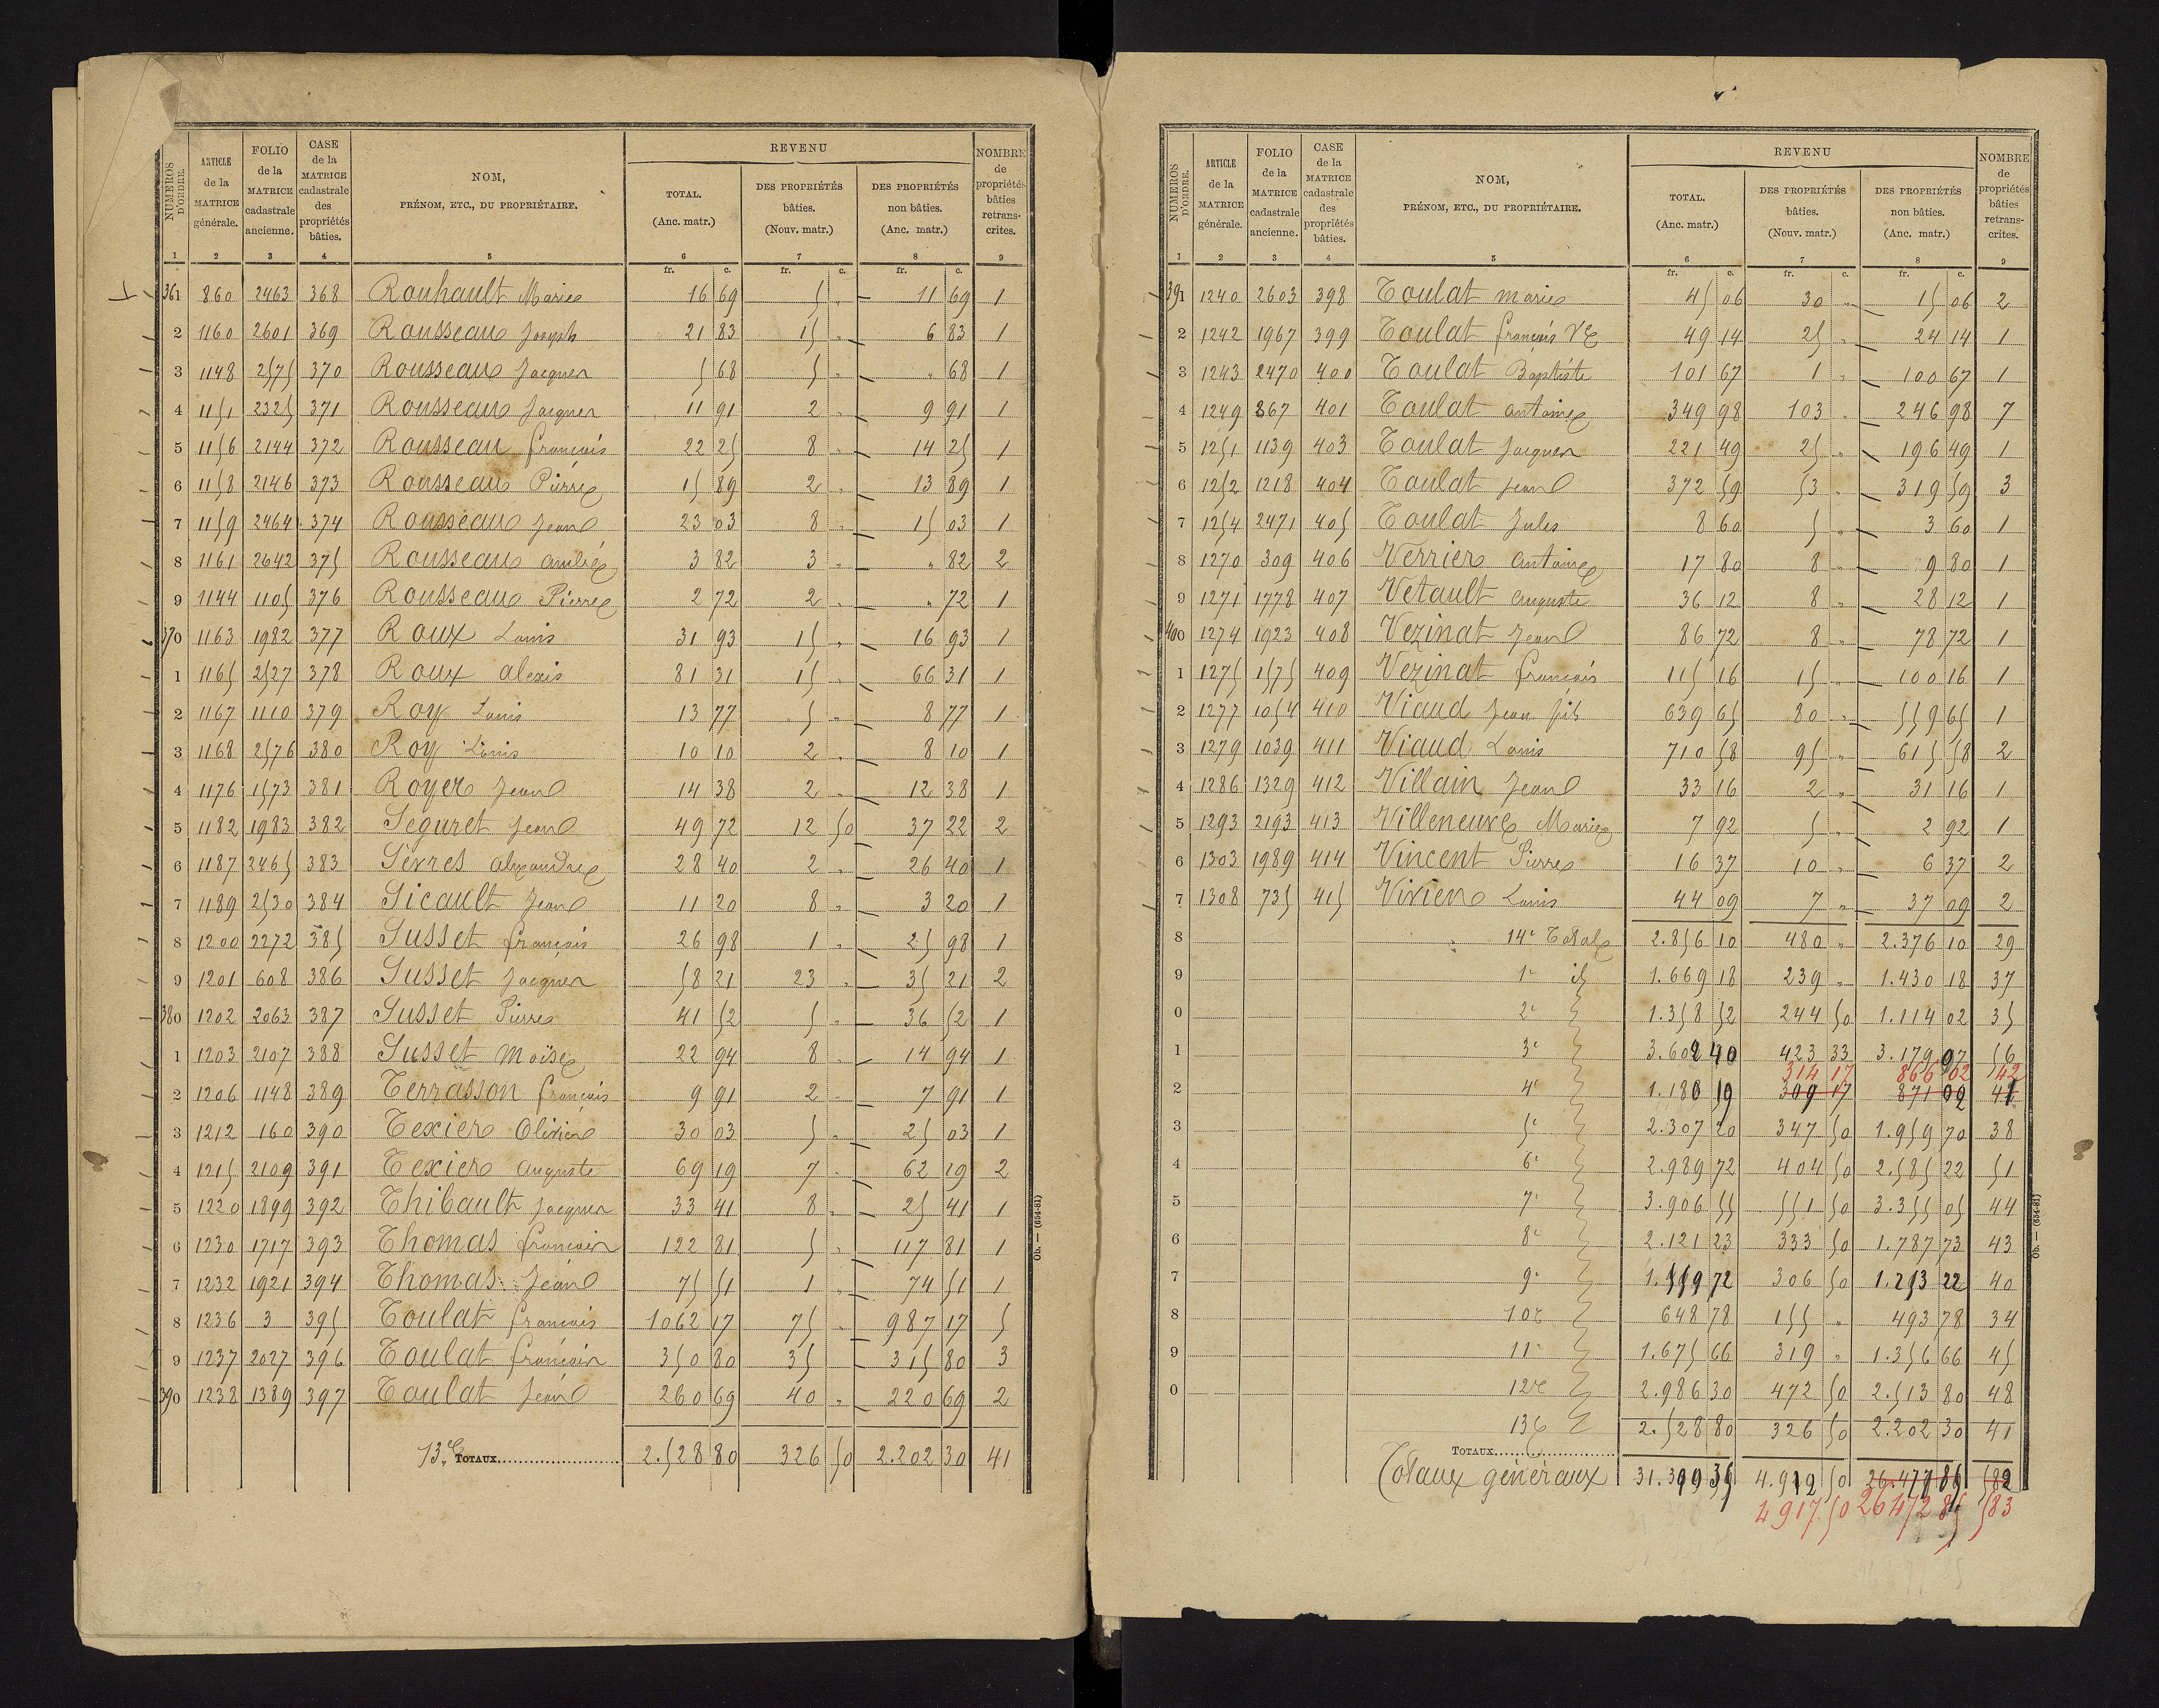 NUMÉROS D'ORDRE. | ARTICLE de la MATRICE générale. | FOLIO de la MATRICE cadastrale ancienne. | CASE de la MATRICE cadastrale des propriétés bâties. | NOM, PRÉNOM, ETC., DU PROPRIÉTAIRE. | REVENU TOTAL. (Anc. matr.) | DES PROPRIÉTÉS bâties. (Nouv. matr.) | DES PROPRIÉTÉS non bâties. (Anc. matr.) | NOMBRE de propriétés bâties retranscrites.
1 | 2 | 3 | 4 | 5 | 6 | 7 | 8 | 9
fr. c. | fr. c. | fr. c.
361 | 860 | 2463 | 368 | Rouhault Marie | 16 69 | 5 " | 11 69 | 1
2 | 1160 | 2601 | 369 | Rousseau Joseph | 21 83 | 15 " | 6 83 | 1
3 | 1148 | 2575 | 370 | Rousseau Jacques | 5 68 | 5 " | " 68 | 1
4 | 1151 | 2325 | 371 | Rousseau Jacques | 11 91 | 2 " | 9 91 | 1
5 | 1156 | 2144 | 372 | Rousseau françois | 22 25 | 8 " | 14 25 | 1
6 | 1158 | 2146 | 373 | Rousseau Pierre | 15 89 | 2 " | 13 89 | 1
7 | 1159 | 2464 | 374 | Rousseau Jean | 23 03 | 8 " | 15 03 | 1
8 | 1161 | 2642 | 375 | Rousseau | 3 82 | 3 " | " 82 | 2
9 | 1144 | 1105 | 376 | Rousseau Pierre | 2 72 | 2 " | " 72 | 1
370 | 1163 | 1982 | 377 | Roux Louis | 31 93 | 15 " | 16 93 | 1
1 | 1165 | 2527 | 378 | Roux alexis | 81 31 | 15 " | 66 31 | 1
2 | 1167 | 1110 | 379 | Roy Louis | 13 77 | 5 " | 8 77 | 1
3 | 1168 | 2576 | 380 | Roy Louis | 10 10 | 2 " | 8 10 | 1
4 | 1176 | 1573 | 381 | Royer Jean | 14 38 | 2 " | 12 38 | 1
5 | 1182 | 1983 | 382 | Seguret Jean | 49 72 | 12 50 | 37 22 | 2
6 | 1187 | 2465 | 383 | Serres alexandre | 28 40 | 2 " | 26 40 | 1
7 | 1189 | 2530 | 384 | Sicault Jean | 11 20 | 8 " | 3 20 | 1
8 | 1200 | 2272 | 385 | Susset françois | 26 98 | 1 " | 25 98 | 1
9 | 1201 | 608 | 386 | Susset Jacques | 58 21 | 23 " | 35 21 | 2
380 | 1202 | 2063 | 387 | Susset Pierre | 41 52 | 5 " | 36 52 | 1
1 | 1203 | 2107 | 388 | Susset Moïse | 22 94 | 8 " | 14 94 | 1
2 | 1206 | 1148 | 389 | Terrasson françois | 9 91 | 2 " | 7 91 | 1
3 | 1212 | 160 | 390 | Texier Olivier | 30 03 | 5 " | 25 03 | 1
4 | 1215 | 2109 | 391 | Texier auguste | 69 19 | 7 " | 62 19 | 2
5 | 1220 | 1899 | 392 | Thibault Jacques | 33 41 | 8 " | 25 41 | 1
6 | 1230 | 1717 | 393 | Thomas françois | 122 81 | 5 " | 117 81 | 1
7 | 1232 | 1921 | 394 | Thomas Jean | 75 51 | 1 " | 74 51 | 1
8 | 1236 | 3 | 395 | Toulat françois | 1062 17 | 75 " | 987 17 | 5
9 | 1237 | 2027 | 396 | Toulat françois | 350 80 | 35 | 315 80 | 3
390 | 1238 | 1389 | 397 | Toulat Jean | 260 69 | 40 " | 220 69 | 2
13e TOTAUX | 2.528 80 | 326 50 | 2.202 30 | 41
Ob. — (654-81)
NUMÉROS D'ORDRE. | ARTICLE de la MATRICE générale. | FOLIO de la MATRICE cadastrale ancienne. | CASE de la MATRICE cadastrale des propriétés bâties. | NOM, PRÉNOM, ETC., DU PROPRIÉTAIRE. | REVENU TOTAL. (Anc. matr.) | DES PROPRIÉTÉS bâties. (Nouv. matr.) | DES PROPRIÉTÉS non bâties. (Anc. matr.) | NOMBRE de propriétés bâties retranscrites.
1 | 2 | 3 | 4 | 5 | 6 | 7 | 8 | 9
fr. c. | fr. c. | fr. c.
391 | 1240 | 2603 | 398 | Toulat marie | 45 06 | 30 " | 15 06 | 2
2 | 1242 | 1967 | 399 | Toulat françois Ve | 49 14 | 25 " | 24 14 | 1
3 | 1243 | 2470 | 400 | Toulat Baptiste | 101 67 | 1 " | 100 67 | 1
4 | 1249 | 867 | 401 | Toulat antoine | 349 98 | 103 " | 246 98 | 7
5 | 1251 | 1139 | 403 | Toulat Jacques | 221 49 | 25 " | 196 49 | 1
6 | 1252 | 1218 | 404 | Toulat Jean | 372 59 | 53 " | 319 59 | 3
7 | 1254 | 2471 | 405 | Toulat Jules | 8 60 | 5 " | 3 60 | 1
8 | 1270 | 309 | 406 | Verrier antoine | 17 80 | 8 " | 9 80 | 1
9 | 1271 | 1778 | 407 | Vetault auguste | 36 12 | 8 " | 28 12 | 1
400 | 1274 | 1923 | 408 | Vezinat Jean | 86 72 | 8 " | 78 72 | 1
1 | 1275 | 1575 | 409 | Vezinat françois | 115 16 | 15 " | 100 16 | 1
2 | 1277 | 1054 | 410 | Viaud Jean fils | 639 65 | 80 " | 559 65 | 1
3 | 1279 | 1039 | 411 | Viaud Louis | 710 58 | 95 " | 615 58 | 2
4 | 1286 | 1329 | 412 | Villain Jean | 33 16 | 2 " | 31 16 | 1
5 | 1293 | 2193 | 413 | Villeneuve Marie | 7 92 | 5 " | 2 92 | 1
6 | 1303 | 1989 | 414 | Vincent Pierre | 16 37 | 10 " | 6 37 | 2
7 | 1308 | 735 | 415 | Vivien Louis | 44 09 | 7 " | 37 09 | 2
8 | 14e Total | 2.856 10 | 480 " | 2.376 10 | 29
9 | 1e id | 1.669 18 | 239 " | 1.430 18 | 37
0 | 2e | 1.358 52 | 244 50 | 1.114 02 | 35
1 | 3e | 3.602 40 | 423 33 | 3.179 07 | 56
314 17 | 866 02 | 42
2 | 4e | 1.180 19 | 309 17 | 871 02 | 41
3 | 5e | 2.307 20 | 347 50 | 1.959 70 | 38
4 | 6e | 2.989 72 | 404 50 | 2.585 22 | 51
5 | 7e | 3.906 55 | 551 50 | 3.355 05 | 44
6 | 8e | 2.121 23 | 333 50 | 1.787 73 | 43
7 | 9e | 1.559 72 | 306 50 | 1.253 22 | 40
8 | 10e | 648 78 | 155 " | 493 78 | 34
9 | 11e | 1.675 66 | 319 " | 1.356 66 | 45
0 | 12e | 2.986 30 | 472 50 | 2.513 80 | 48
13e | 2.528 80 | 326 50 | 2.202 30 | 41
TOTAUX
Totaux généraux | 31.390 35 | 4.912 50 | 26.477 85 | 582
4 917.50 | 26 472 85 | 583
Ob. — (654-81)